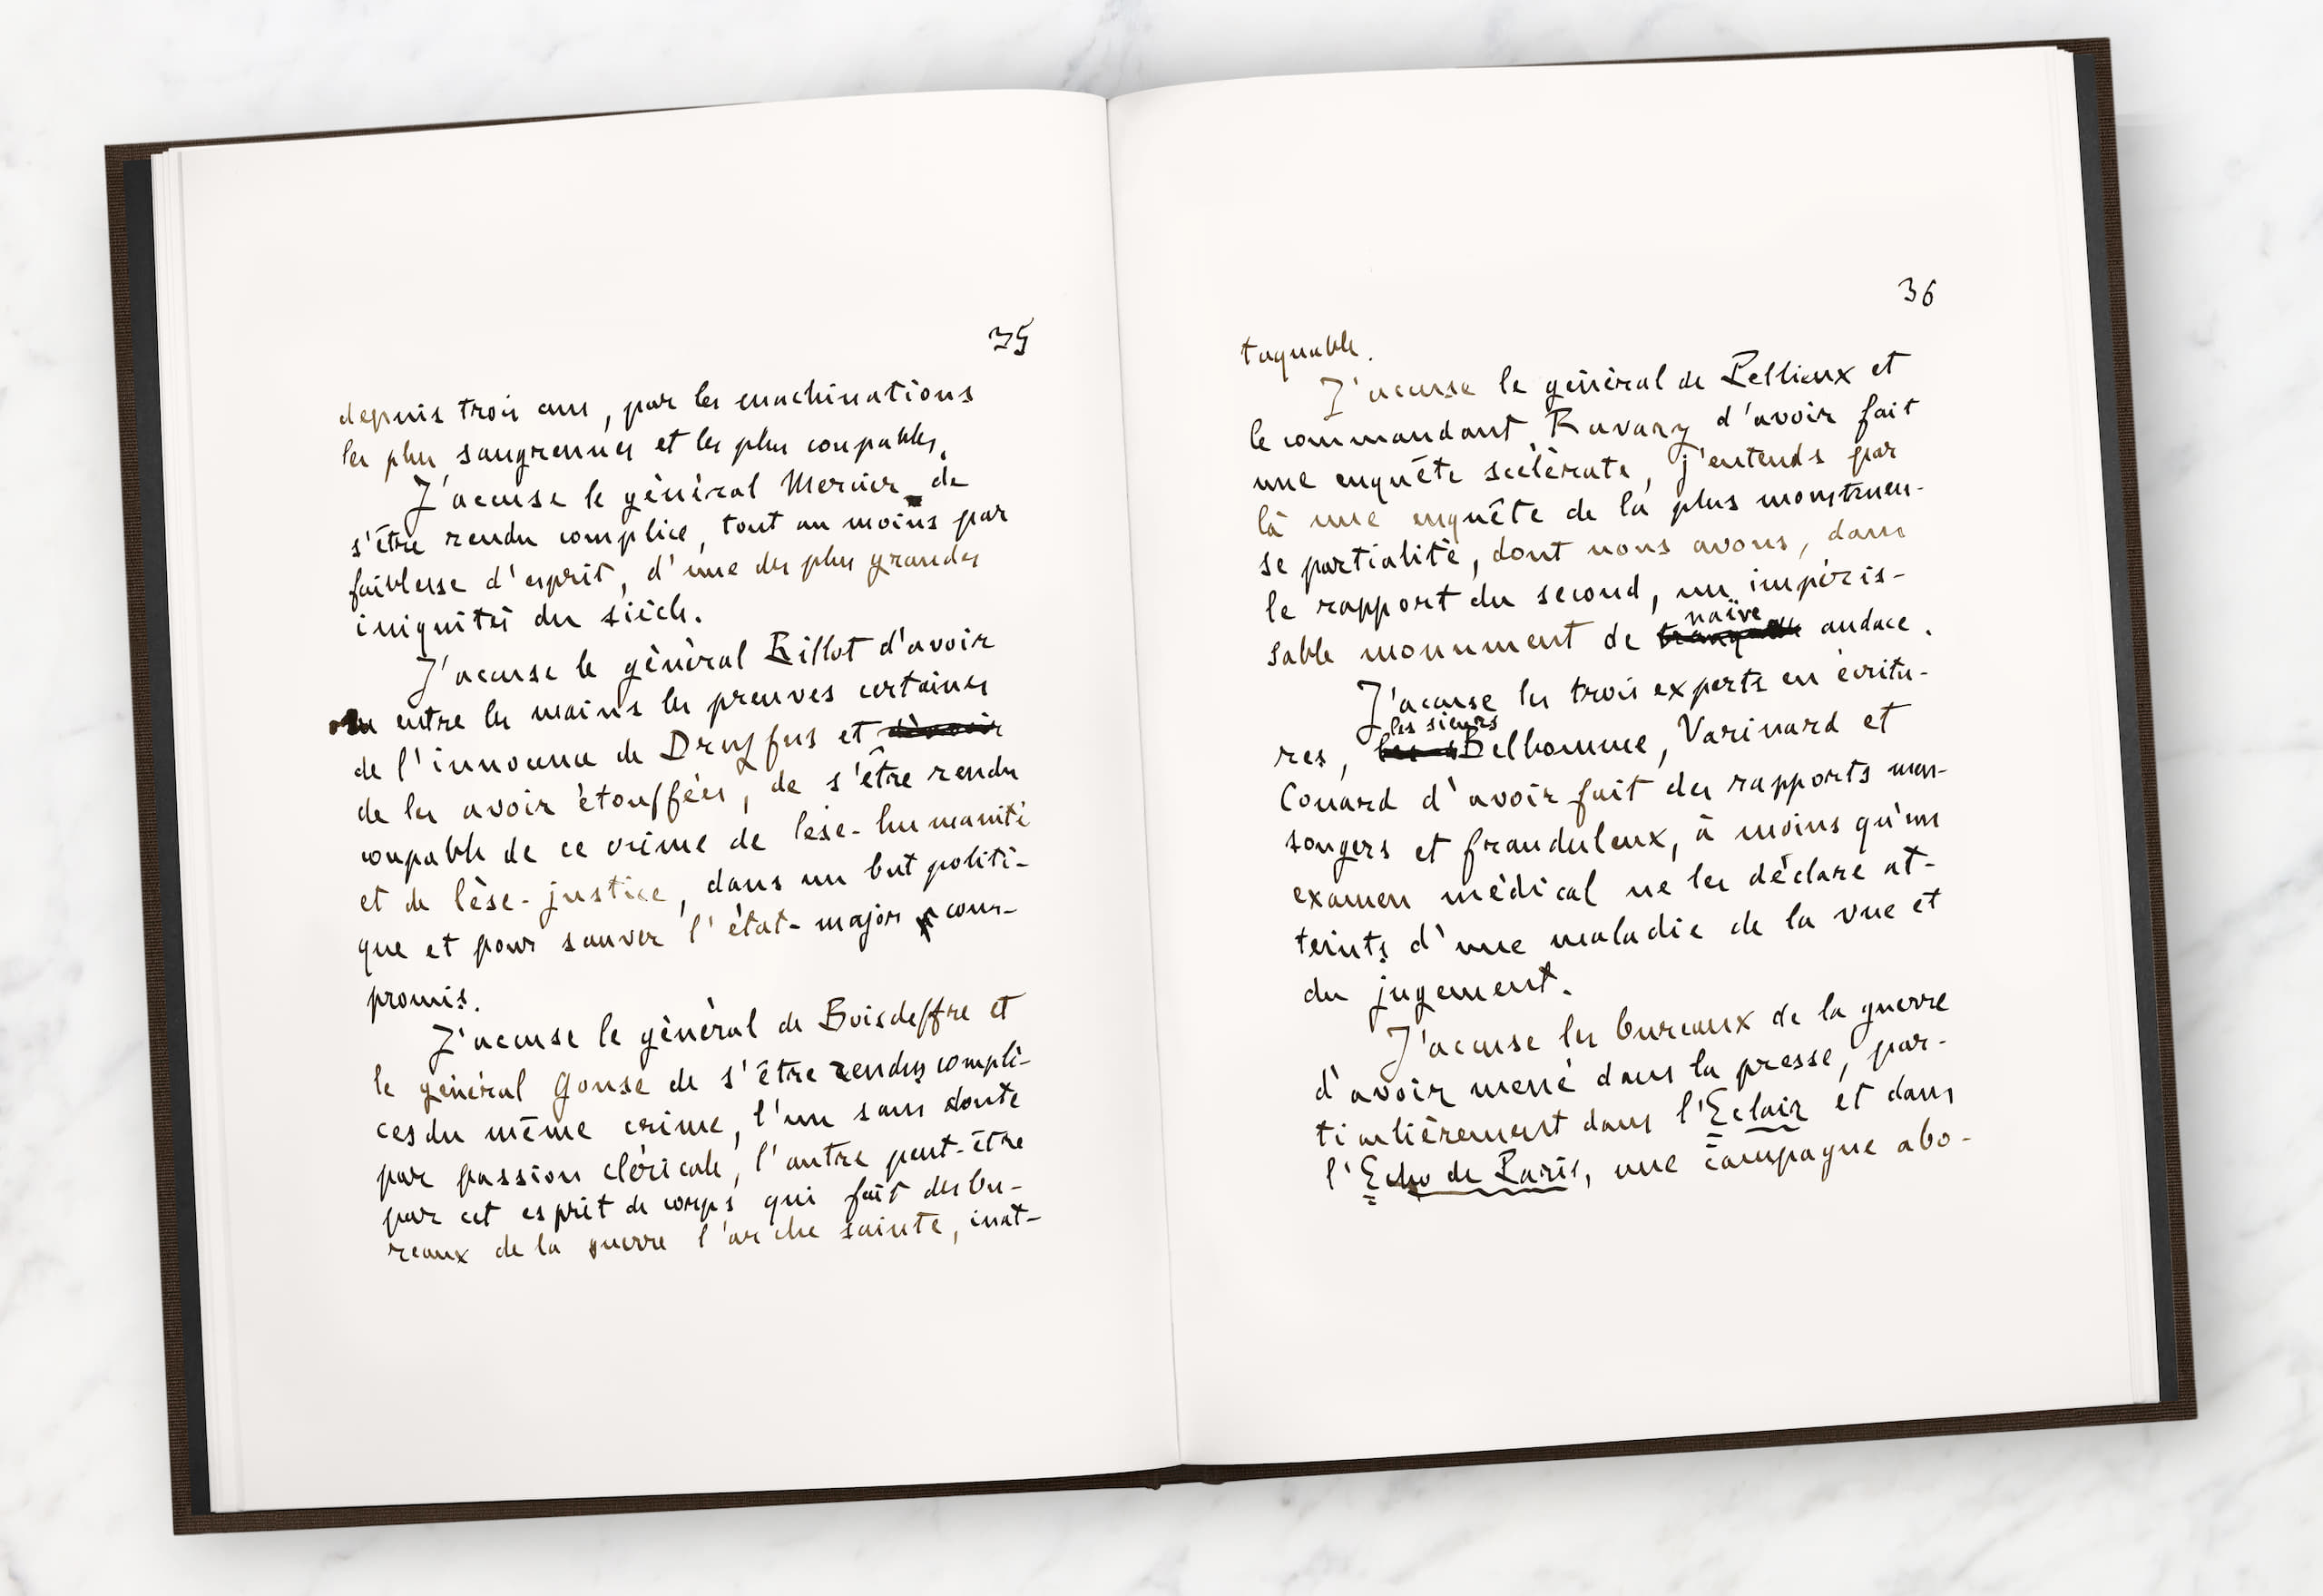 35
depuis trois ans, par les machinations
les plus saugrenues et les plus coupables.
J'accuse le général Mercier de
s'être rendu complice, tout au moins par
faiblesse d'esprit, d'une des plus grandes
iniquités du siècle.
J'accuse le général Billot d'avoir
eu entre les mains les preuves certaines
de l'innocence de Dreyfus et
de les avoir étouffées, de s'être rendu
coupable de ce crime de lèse-humanité
et de lèse-justice, dans un but politi-
que et pour sauver l'état-major com-
promis.
J'accuse le général de Boisdeffre et
le général Gonse de s'être rendus compli-
ces du même crime, l'un sans doute
par passion cléricale, l'autre peut-être
par cet esprit de corps qui fait des bu-
reaux de la guerre l'arche sainte, inat-
36
taquable.
J'accuse le général de Pellieux et
le commandant Ravary d'avoir fait
une enquête scélérate, j'entends par
là une enquête de la plus monstrueu-
se partialité, dont nous avons, dans
le rapport du second, un impéris-
naïve
sable monument de audace.
J'accuse les trois experts en écritu-
les sieurs
res, Belhomme, Varinard et
Couard d'avoir fait des rapports men-
songers et frauduleux, à moins qu'un
examen médical ne les déclare at-
teints d'une maladie de la vue et
du jugement.
J'accuse les bureaux de la guerre
d'avoir mené dans la presse, par-
ticulièrement dans l'Eclair et dans
l'Echo de Paris, une campagne abo-